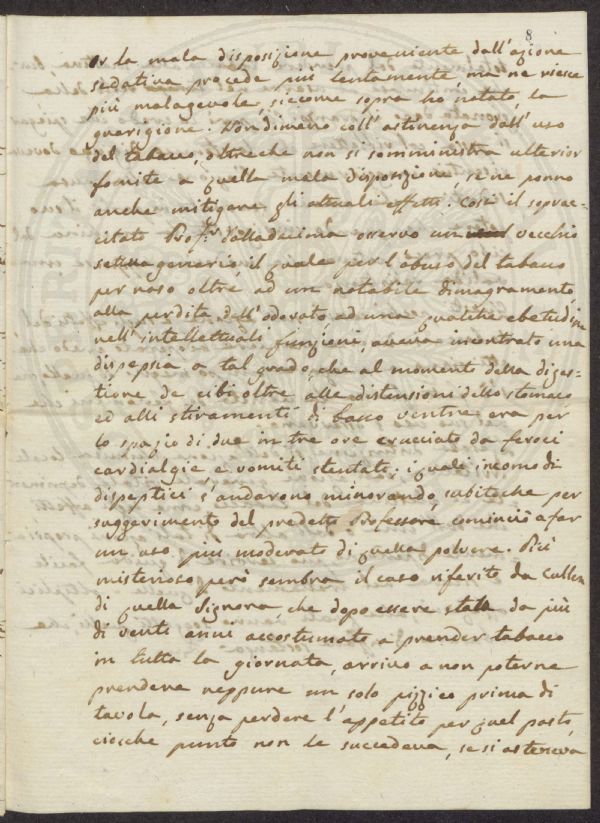 8
Or la mala disposizione proveniente dall'azione
sedativa procede più lentamente ma ne riesce
più malagevole, siccome sopra ho notato, la
guarigione. Nondimeno coll'astinenza dall'uso
del tabacco, oltreche non si somministra ulterior
fomite a quella mala disposizione, se ne ponno
anche mitigare gli attuali effetti. Così il soprac=
citato Prof.r Dalladecima osservò un vecchio
settuagenario, il quale per l'abuso del tabacco
per naso oltre ad un notabile dimagramento,
alla perdita dell'odorato, ad una qualche ebetudine
nell'intellettuali funzioni, aveva incontrato una
dispepsia a tal grado, che al momento della diges=
tione de cibi oltre alle distensioni dello stomaco
ed alli stiramenti di basso ventre era per
lo spazio di due in tre ore crucciato da feroci
cardialgie, e vomiti stentati; i quali incomodi
dispeptici s'andarono minorando, subitoche per
suggerimento del predetto Professore cominciò a far
un uso più moderato di quella polvere. Più
misterioso però sembra il caso riferito da Cullen
di quella Signora che dopo essere stata da più
di venti anni accostumata a prender tabacco
in tutta la giornata, arrivo a non poterne
prendere neppure un solo pizzico prima di
tavola, senza perdere l'appetito per quel pasto,
ciocche punto non le succedeva, se si asteneva